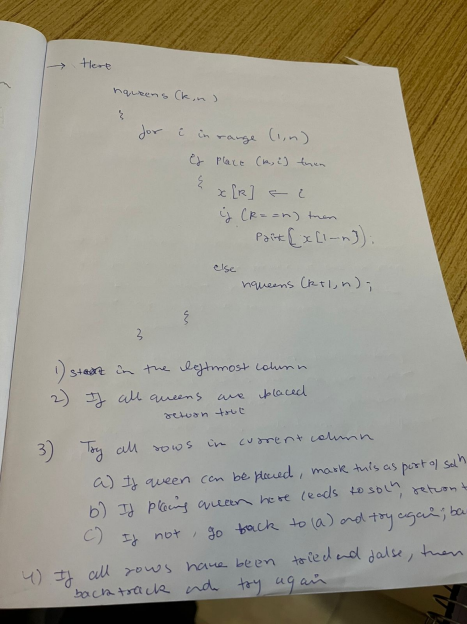 → Here
nqueens (k,n)
{
for i in range (1,n)
if place (k,i) then
{
x[k] ← i
if (k==n) then
Print[x[1-n]);
else
nqueens (k+1, n);
{
}
1) start in the leftmost column
2) If all queens are placed
return true
3) Try all rows in current column
a) If queen can be placed, mark this as part of solⁿ
b) If placing queen here leads to solⁿ, return t
c) If not, go back to (a) and try again; ba
4) If all rows have been tried and false, then
backtrack and try again